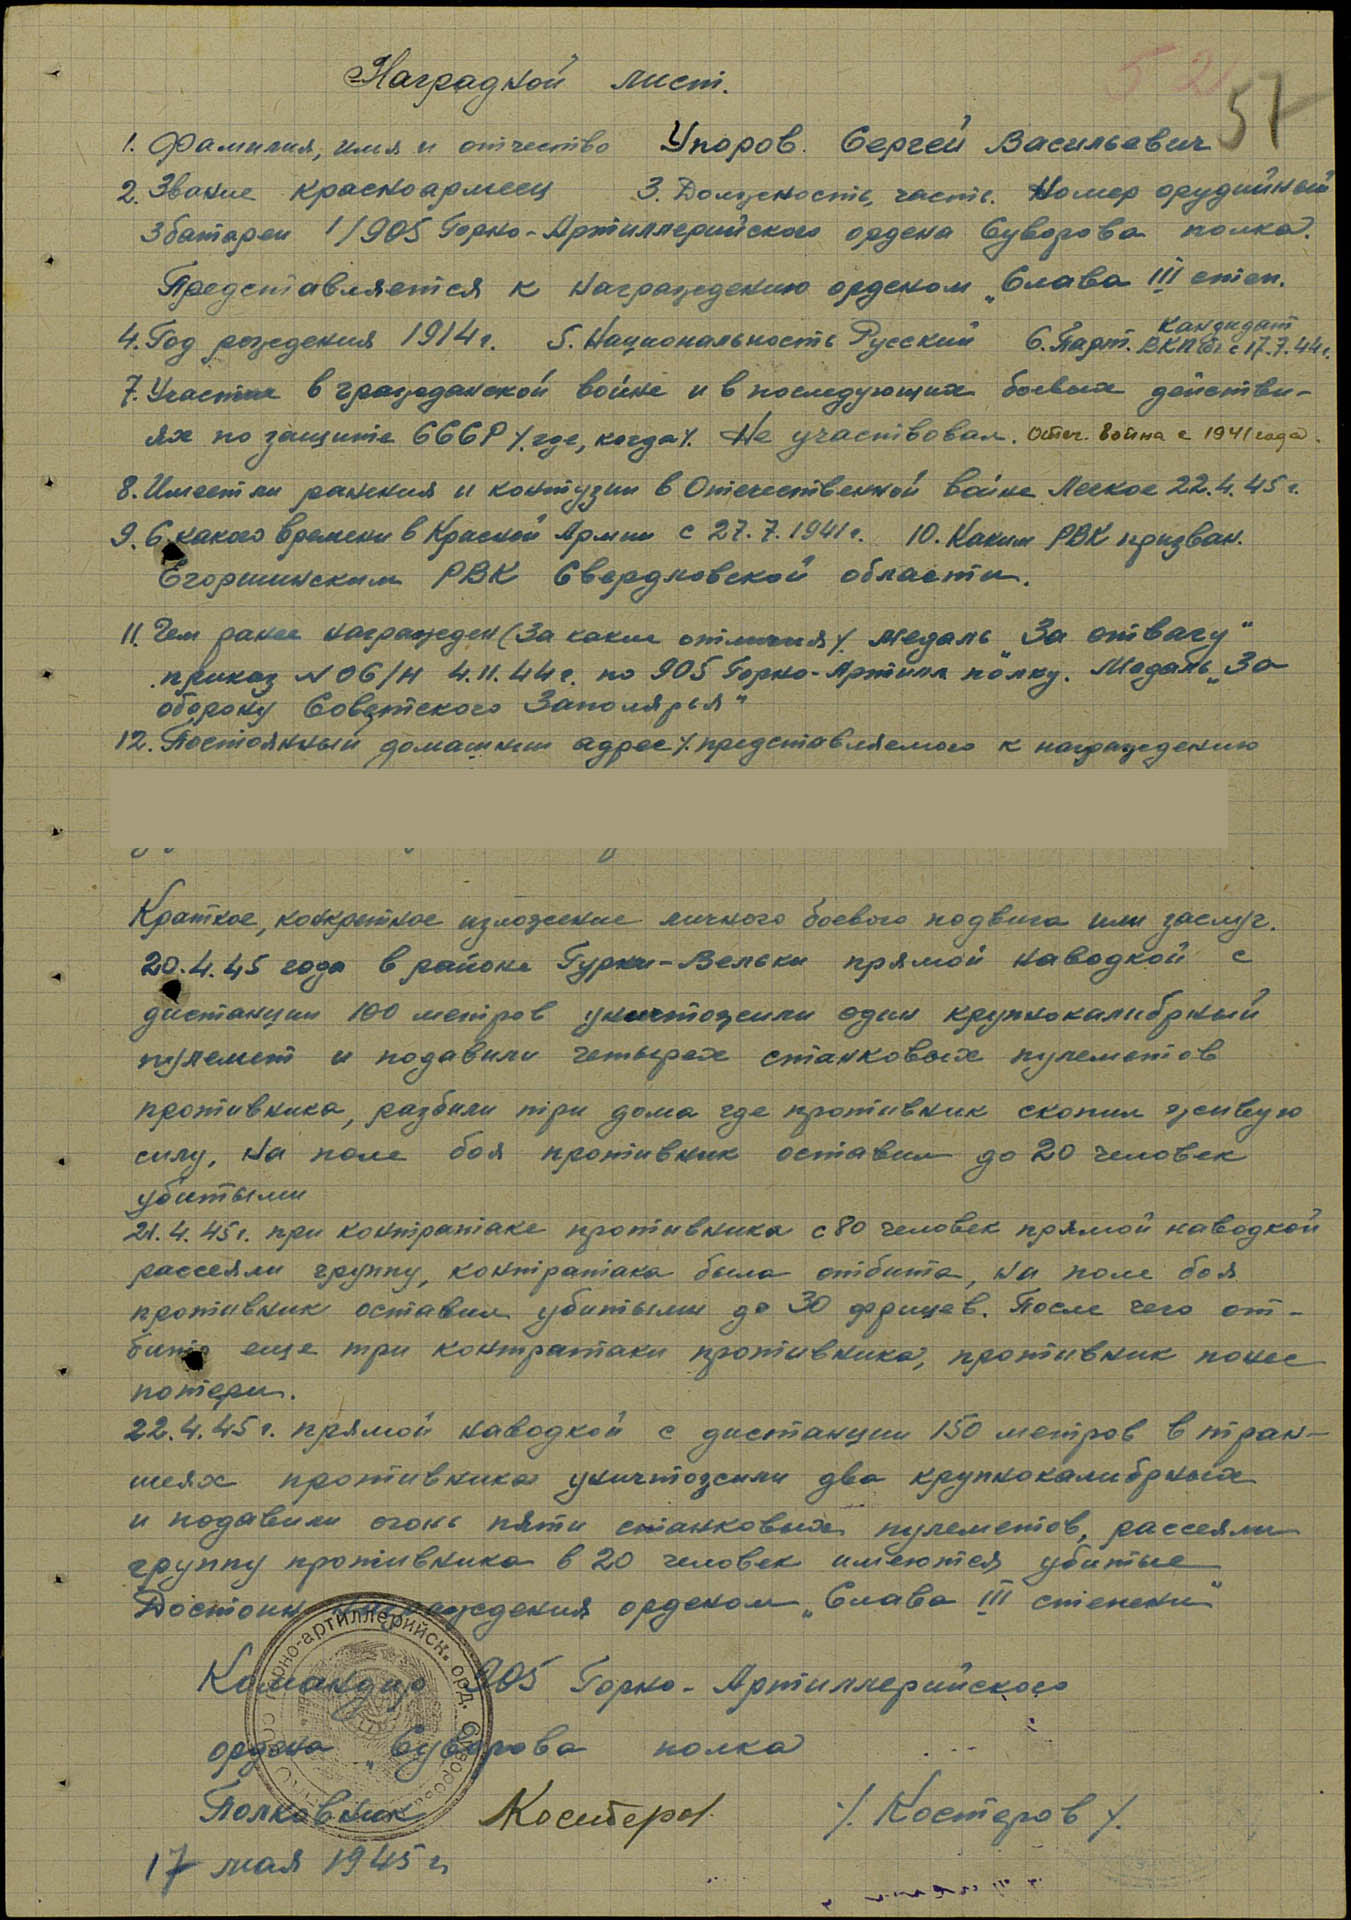 Наградной лист.
57
1. Фамилия, имя и отчество Упоров Сергей Васильевич
2. Звание красноармеец 3. Должность, часть. Номер орудийный
3 батареи 1/905 Горно-Артиллерийского ордена Суворова полка.
Представляется к награждению орденом „Слава III степ.
4. Год рождения 1914 г. 5. Национальность Русский 6. Парт. Кандидат ВКП(б) с 17.7.44 г.
7. Участие в гражданской войне и в последующих боевых действи-
ях по защите СССР /где, когда/. Не участвовал. Отеч. война с 1941 года.
8. Имеет ли ранения и контузии в Отечественной войне Легкое 22.4.45 г.
9. С какого времени в Красной Армии с 27.7.1941 г. 10. Каким РВК призван.
Егоршинским РВК Свердловской области.
11. Чем ранее награжден (за какие отличия/. Медаль „За отвагу"
приказ № 06/н 4.11.44 г. по 905 Горно-Артилл полку. Медаль „За
оборону Советского Заполярья"
12. Постоянный домашний адрес /. представляемого к награждению
Краткое, конкретное изложение личного боевого подвига или заслуг.
20.4.45 года в районе Гурки-Вельки прямой наводкой с
дистанции 100 метров уничтожили один крупнокалибрный
пулемет и подавили четырех станковых пулеметов
противника, разбили три дома где противник скопил живую
силу, на поле боя противник оставил до 20 человек
убитыми
21.4.45 г. при контратаке противника с 80 человек прямой наводкой
рассеяли группу, контратака была отбита, на поле боя
противник оставил убитыми до 30 фрицев. После чего от-
бито еще три контратаки противника, противник понес
потери.
22.4.45 г. прямой наводкой с дистанции 150 метров в тран-
шеях противника уничтожили два крупнокалибрных
и подавили огонь пяти станковых пулеметов, рассеяли
группу противника в 20 человек имеются убитые
Достоин награждения орденом „Слава III степени"
Командир 905 Горно-Артиллерийского
ордена „Суворова полка
Полковник Костеров /. Костеров /.
17 мая 1945 г.
горно-артиллерийск. орд. Суворова